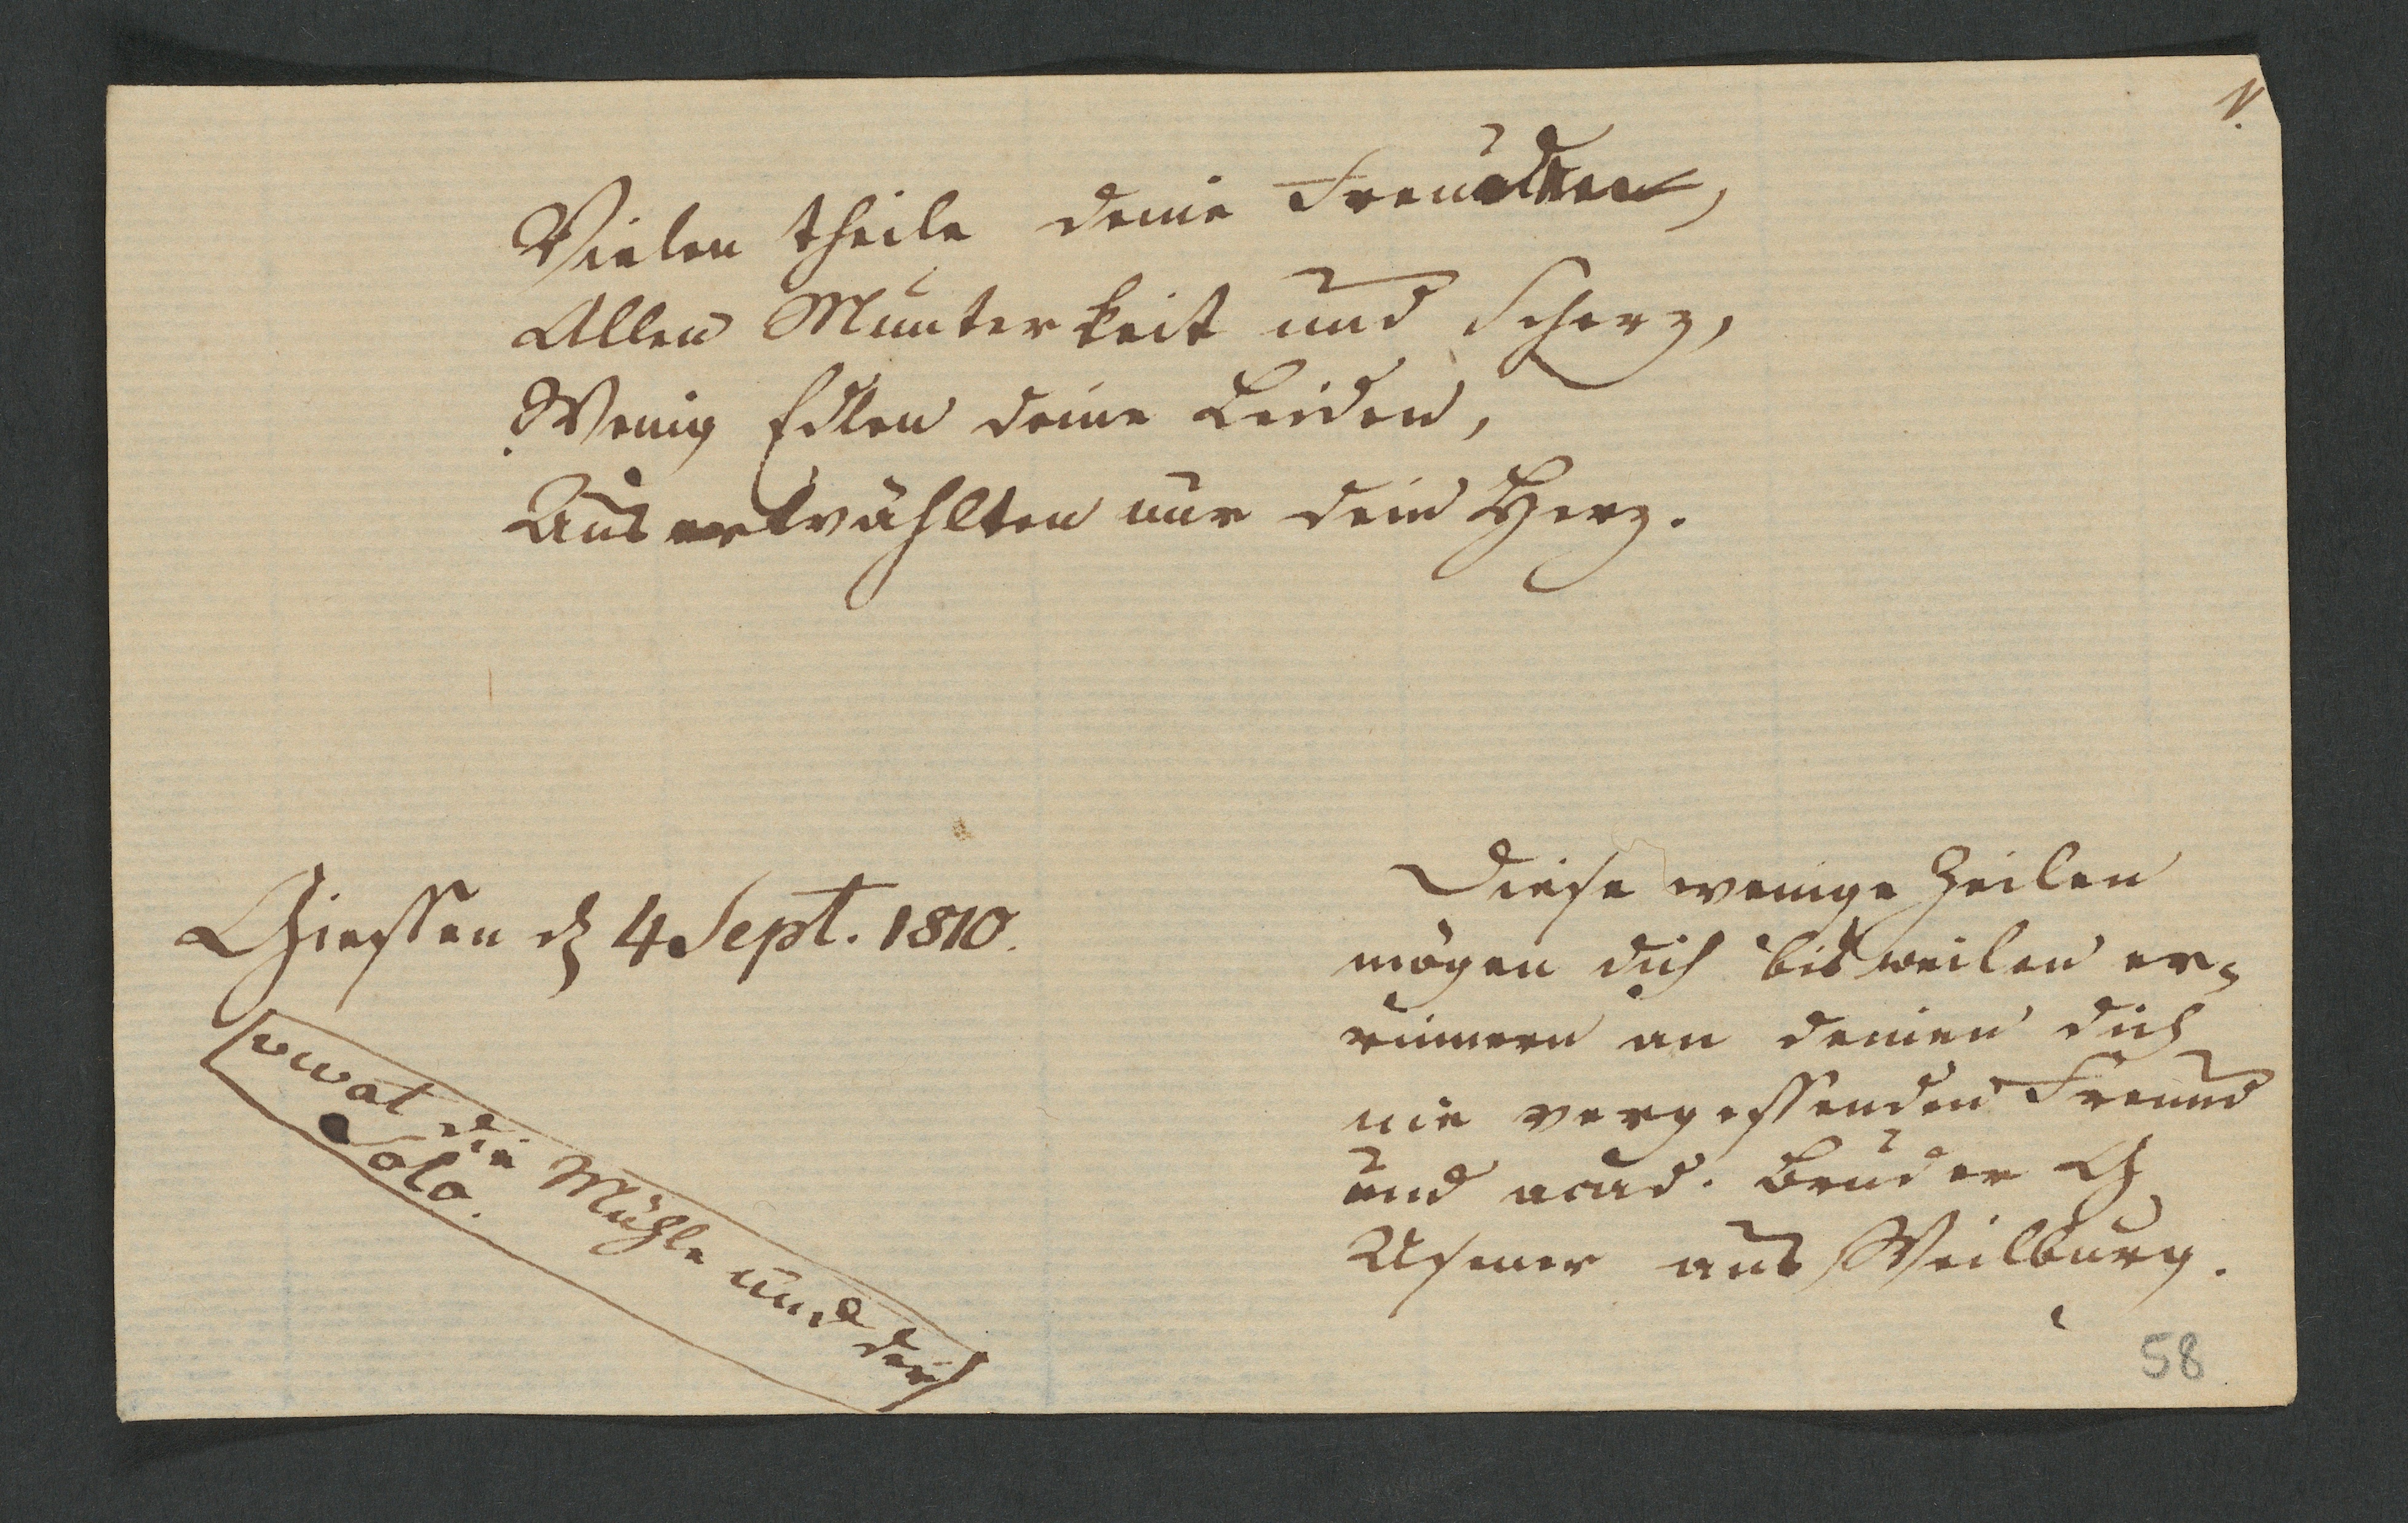 V.
Vielen theile deine Freuden,
Allen Munterkeit und Scherz,
Wenig Edlen deine Leiden,
Auserwählten nur dein Herz.
Giessen d 4 Sept. 1810.
vivat die Mühle und der
Solo.
Diese wenige Zeilen
mögen dich bisweilen er-
innern an deinen dich
nie vergessenden Freund
und acad. Bruder
Usener aus Weilburg.
58